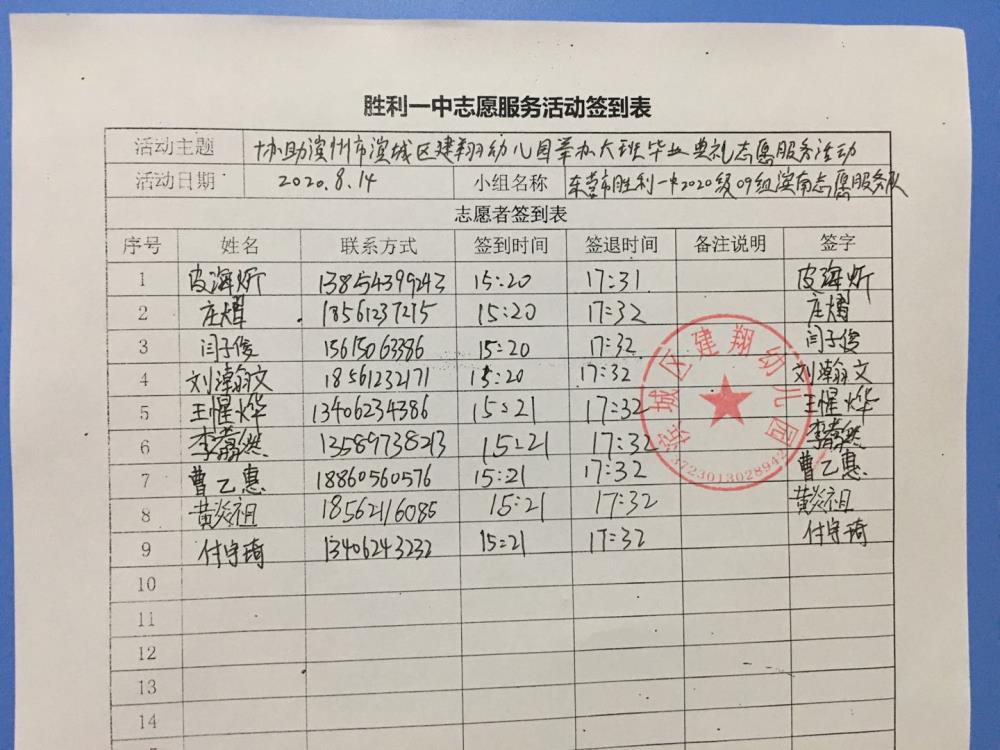 胜利一中志愿服务活动签到表
活动主题 协助滨州市滨城区建翔幼儿园举办大班毕业典礼志愿服务活动
活动日期 2020.8.14 小组名称 东营市胜利一中2020级09组滨南志愿服务队
志愿者签到表
序号 姓名 联系方式 签到时间 签退时间 备注说明 签字
1 皮海炘 13854399243 15:20 17:31 皮海炘
2 庄熠 18561237215 15:20 17:32 庄熠
3 闫子俊 15615063386 15:20 17:32 闫子俊
4 刘瀚文 18561232171 15:20 17:32 刘瀚文
5 王惺烨 13406234386 15:21 17:32 王惺烨
6 李 然 13589738213 15:21 17:32 李 然
7 曹乙惠 18860560576 15:21 17:32 曹乙惠
8 黄炎祖 18562116085 15:21 17:32 黄炎祖
9 付守琦 13406243232 15:21 17:32 付守琦
10
11
12
13
14
滨城区建翔幼儿园
3723013028942